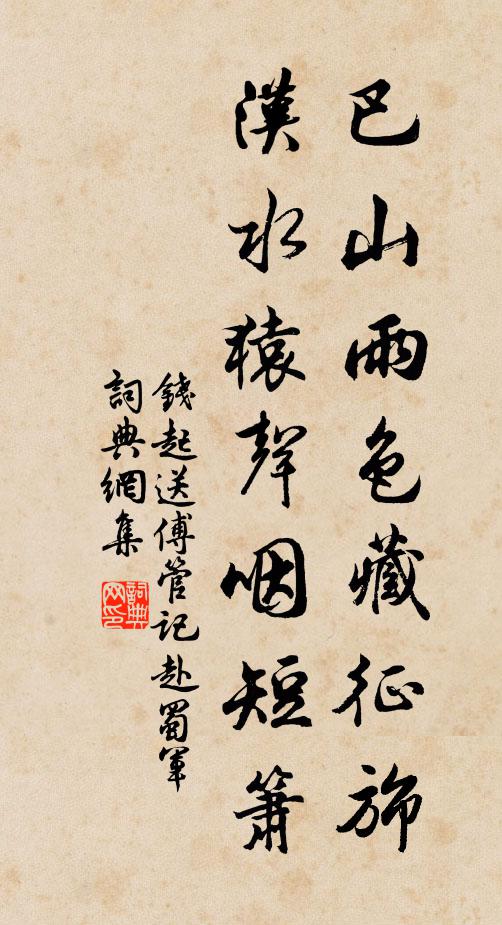 巴山雨色藏征旆
漢水猿聲咽短簫
錢起送傅管記赴蜀軍
詞典網集
詞典网印